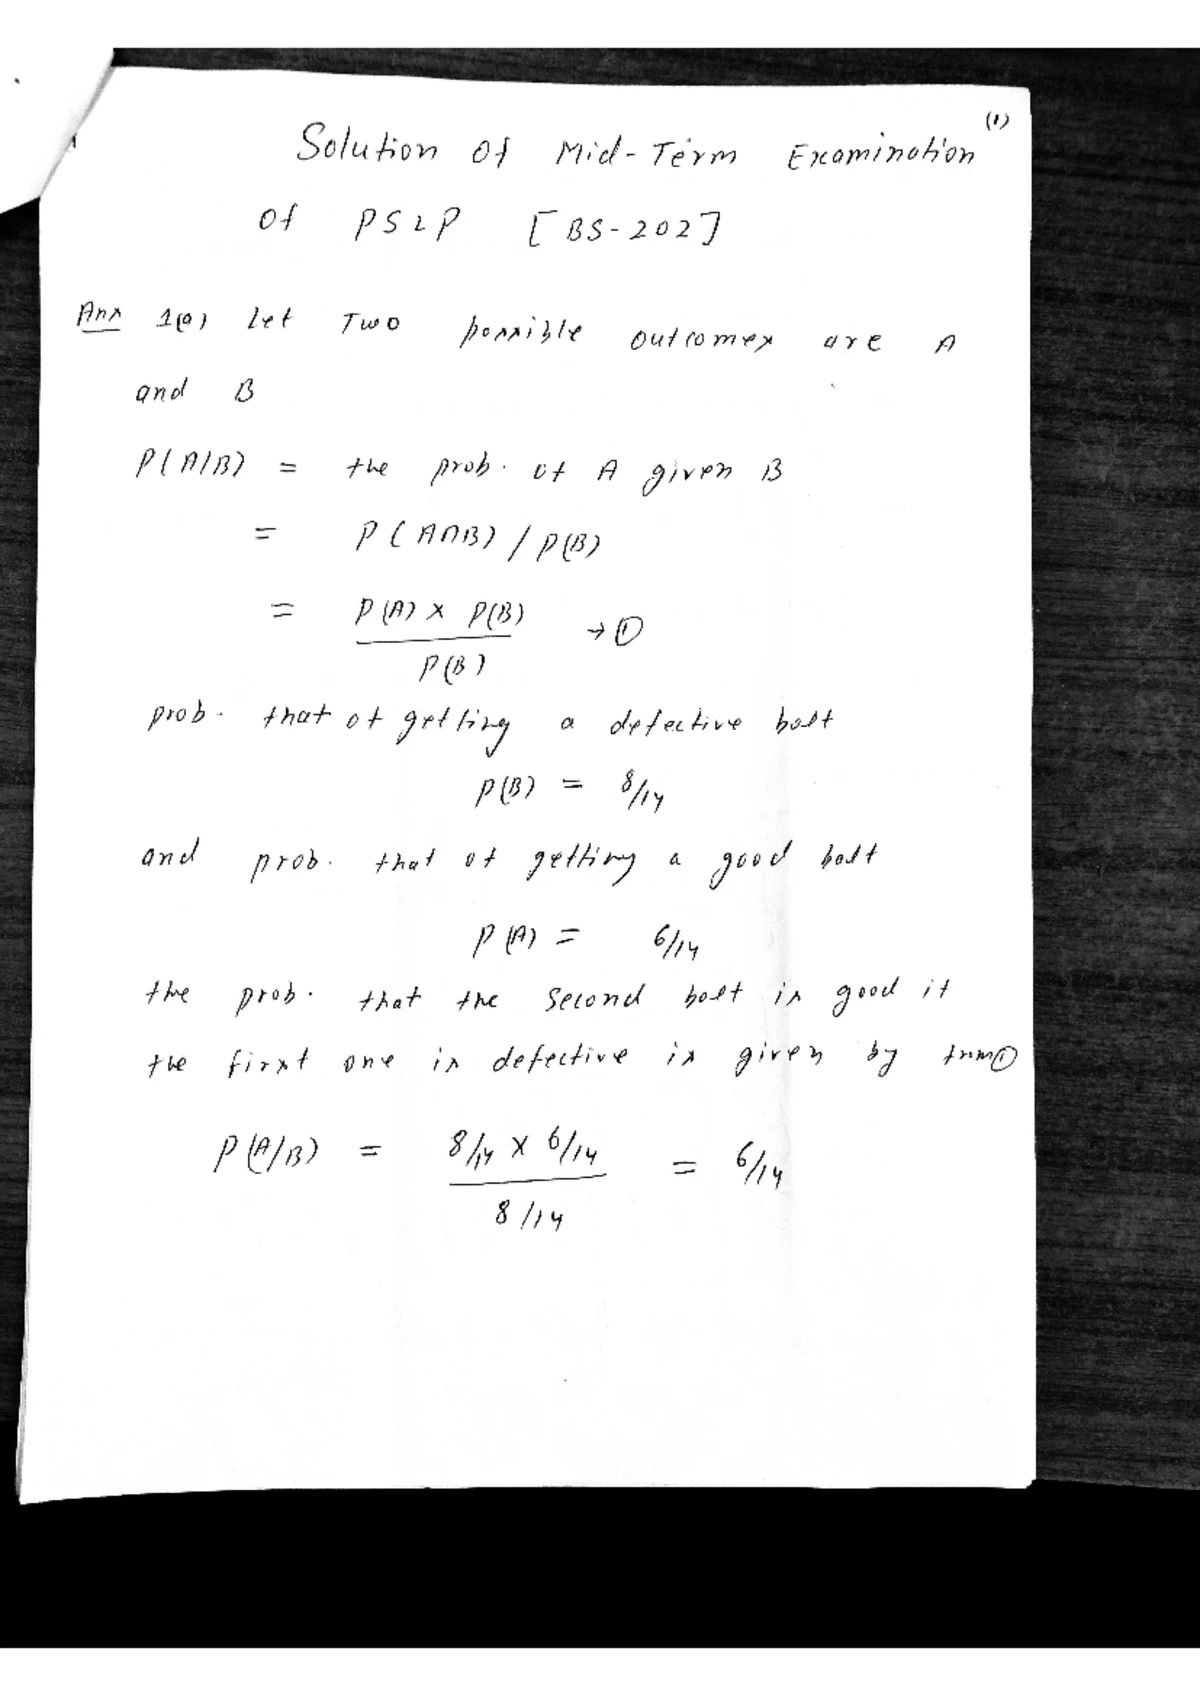 (1)
Solution Of Mid-Term Examination
Of PSLP [BS-202]
Ans 1(a) Let Two possible outcomes are A
and B
P(A/B) = the prob. of A given B
= P(A∩B) / P(B)
= P(A) × P(B) / P(B) → ①
prob. that of getting a defective bolt
P(B) = 8/14
and prob. that of getting a good bolt
P(A) = 6/14
the prob. that the second bolt is good if
the first one is defective is given by from ①
P(A/B) = 8/14 × 6/14 / 8/14 = 6/14